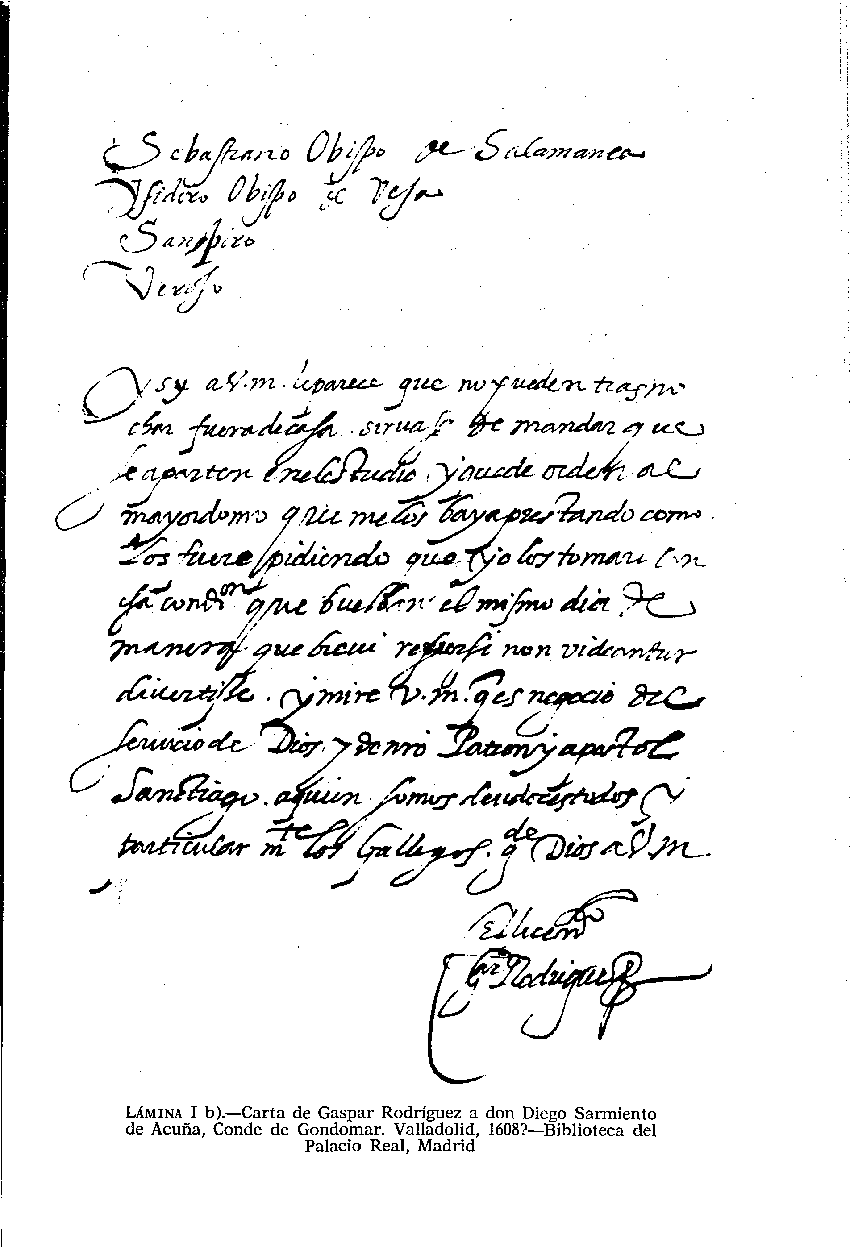 Sebastiano Obispo de Salamanca
Ysidoro Obispo de Veja
Sampiro
Veroso
Y sy a V.m. le parece que no pueden trasno
char fuera de casa. siruase de mandar que
se aparten en el Estudio, y quede orden al
mayordomo que me los vaya prestando como
los fuere pidiendo que yo los tomare con
esa condion que buelban el mismo dia de
manera que breui reuersi non videantur
divertisse. y mire V.m. q es negocio del
seruicio de Dios, y de nro Patron y apostol
Sanctiago. a quien somos deudores todos y
particular mte los Gallegos. gde Dios a V.m.
El licendo
Gar Rodriguez
LÁMINA I b).—Carta de Gaspar Rodríguez a don Diego Sarmiento
de Acuña, Conde de Gondomar. Valladolid, 1608?—Biblioteca del
Palacio Real, Madrid